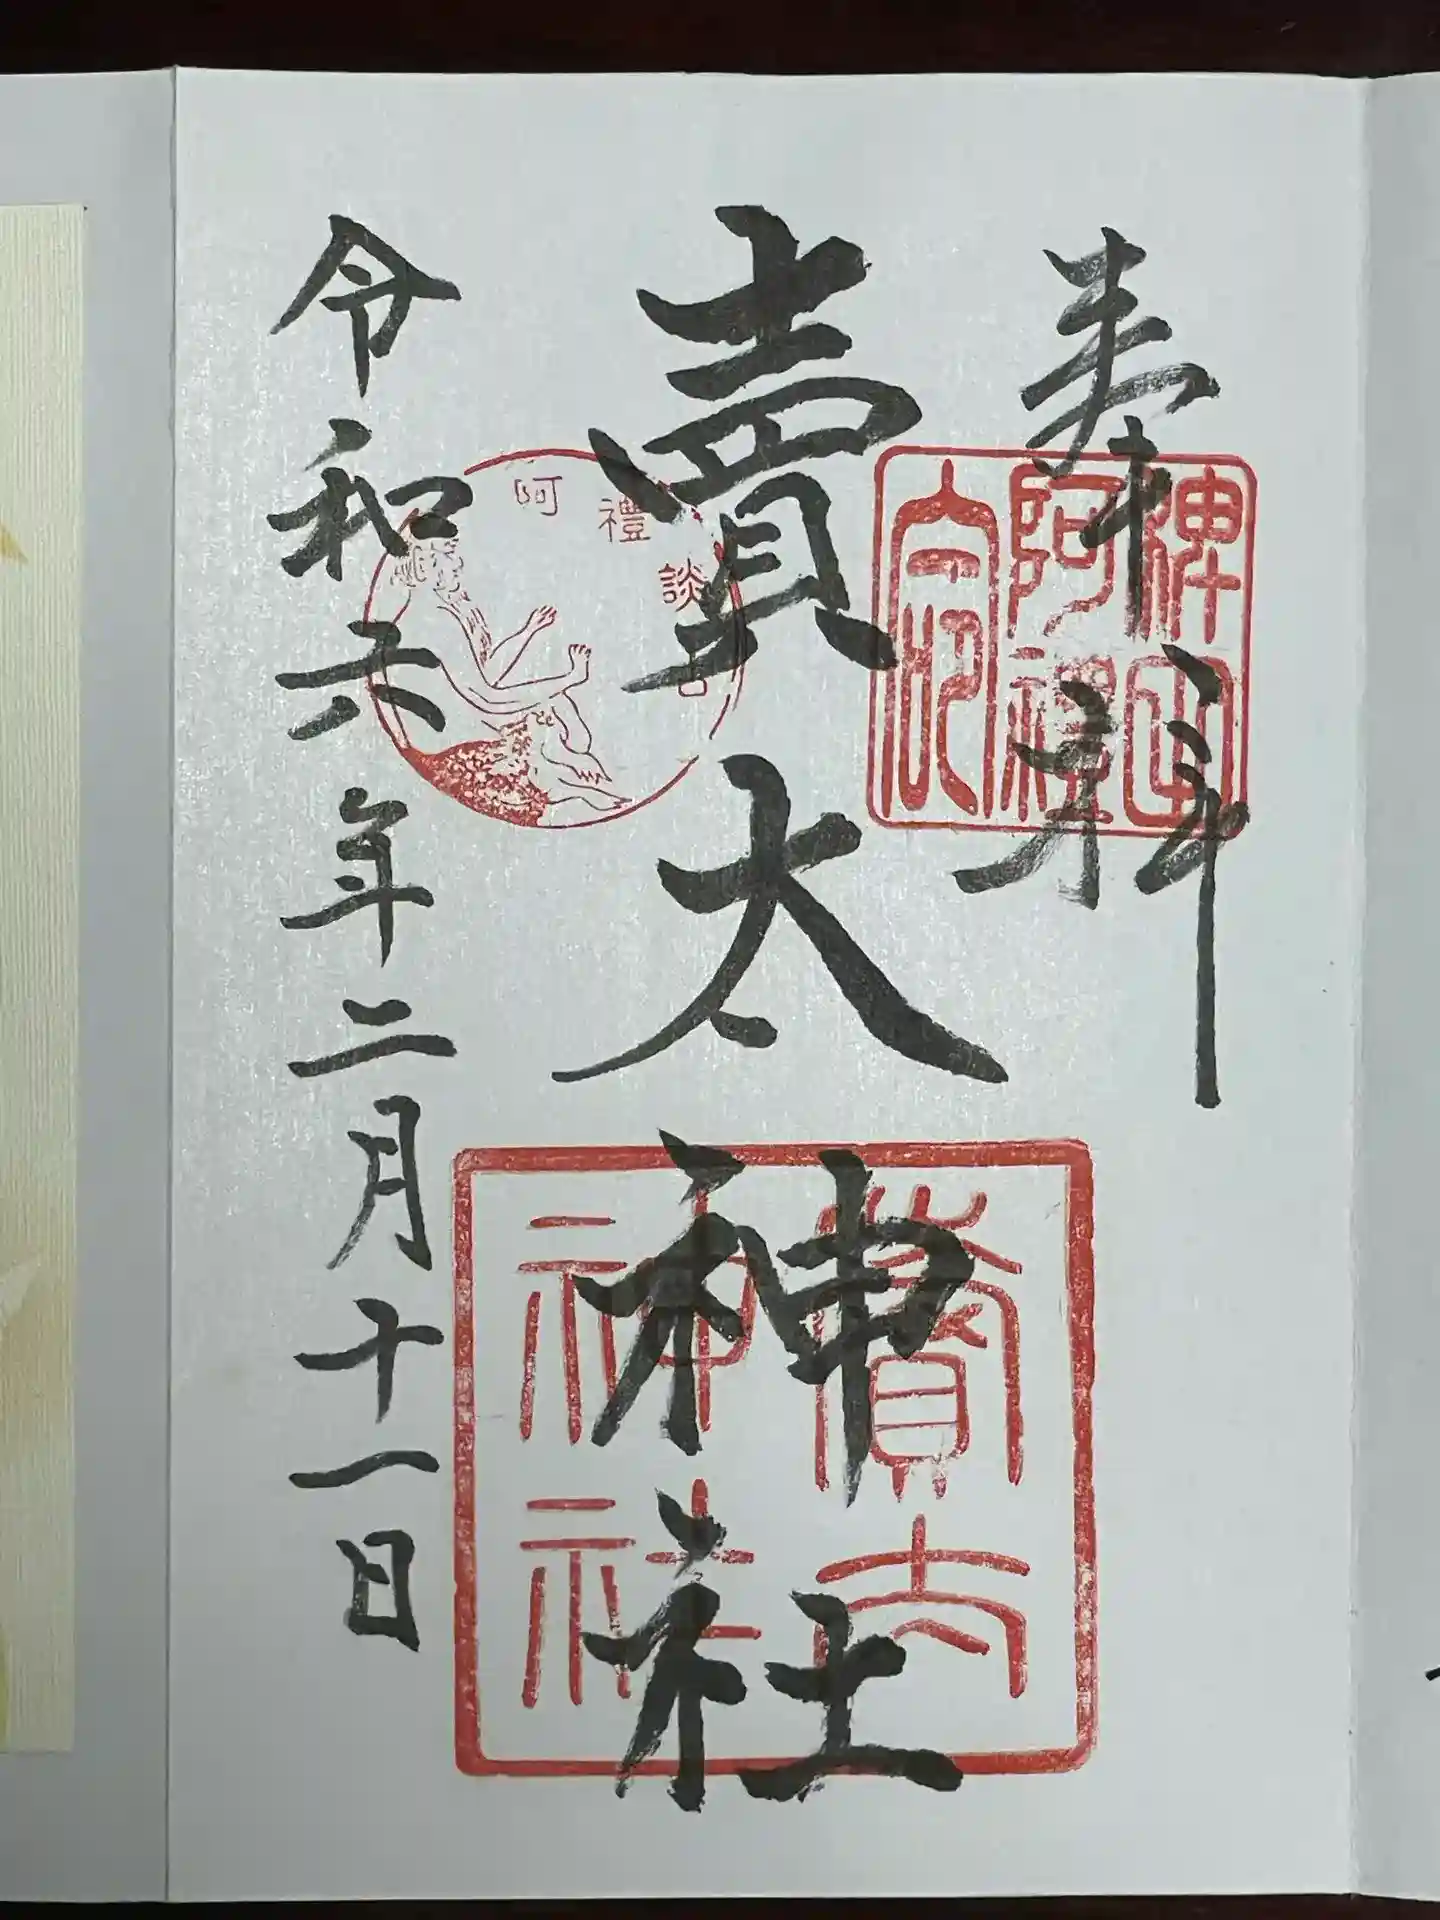 奉拝
稗田
阿禮
命印
賣太神社
賣太
神社
阿禮談
令和六年二月十一日